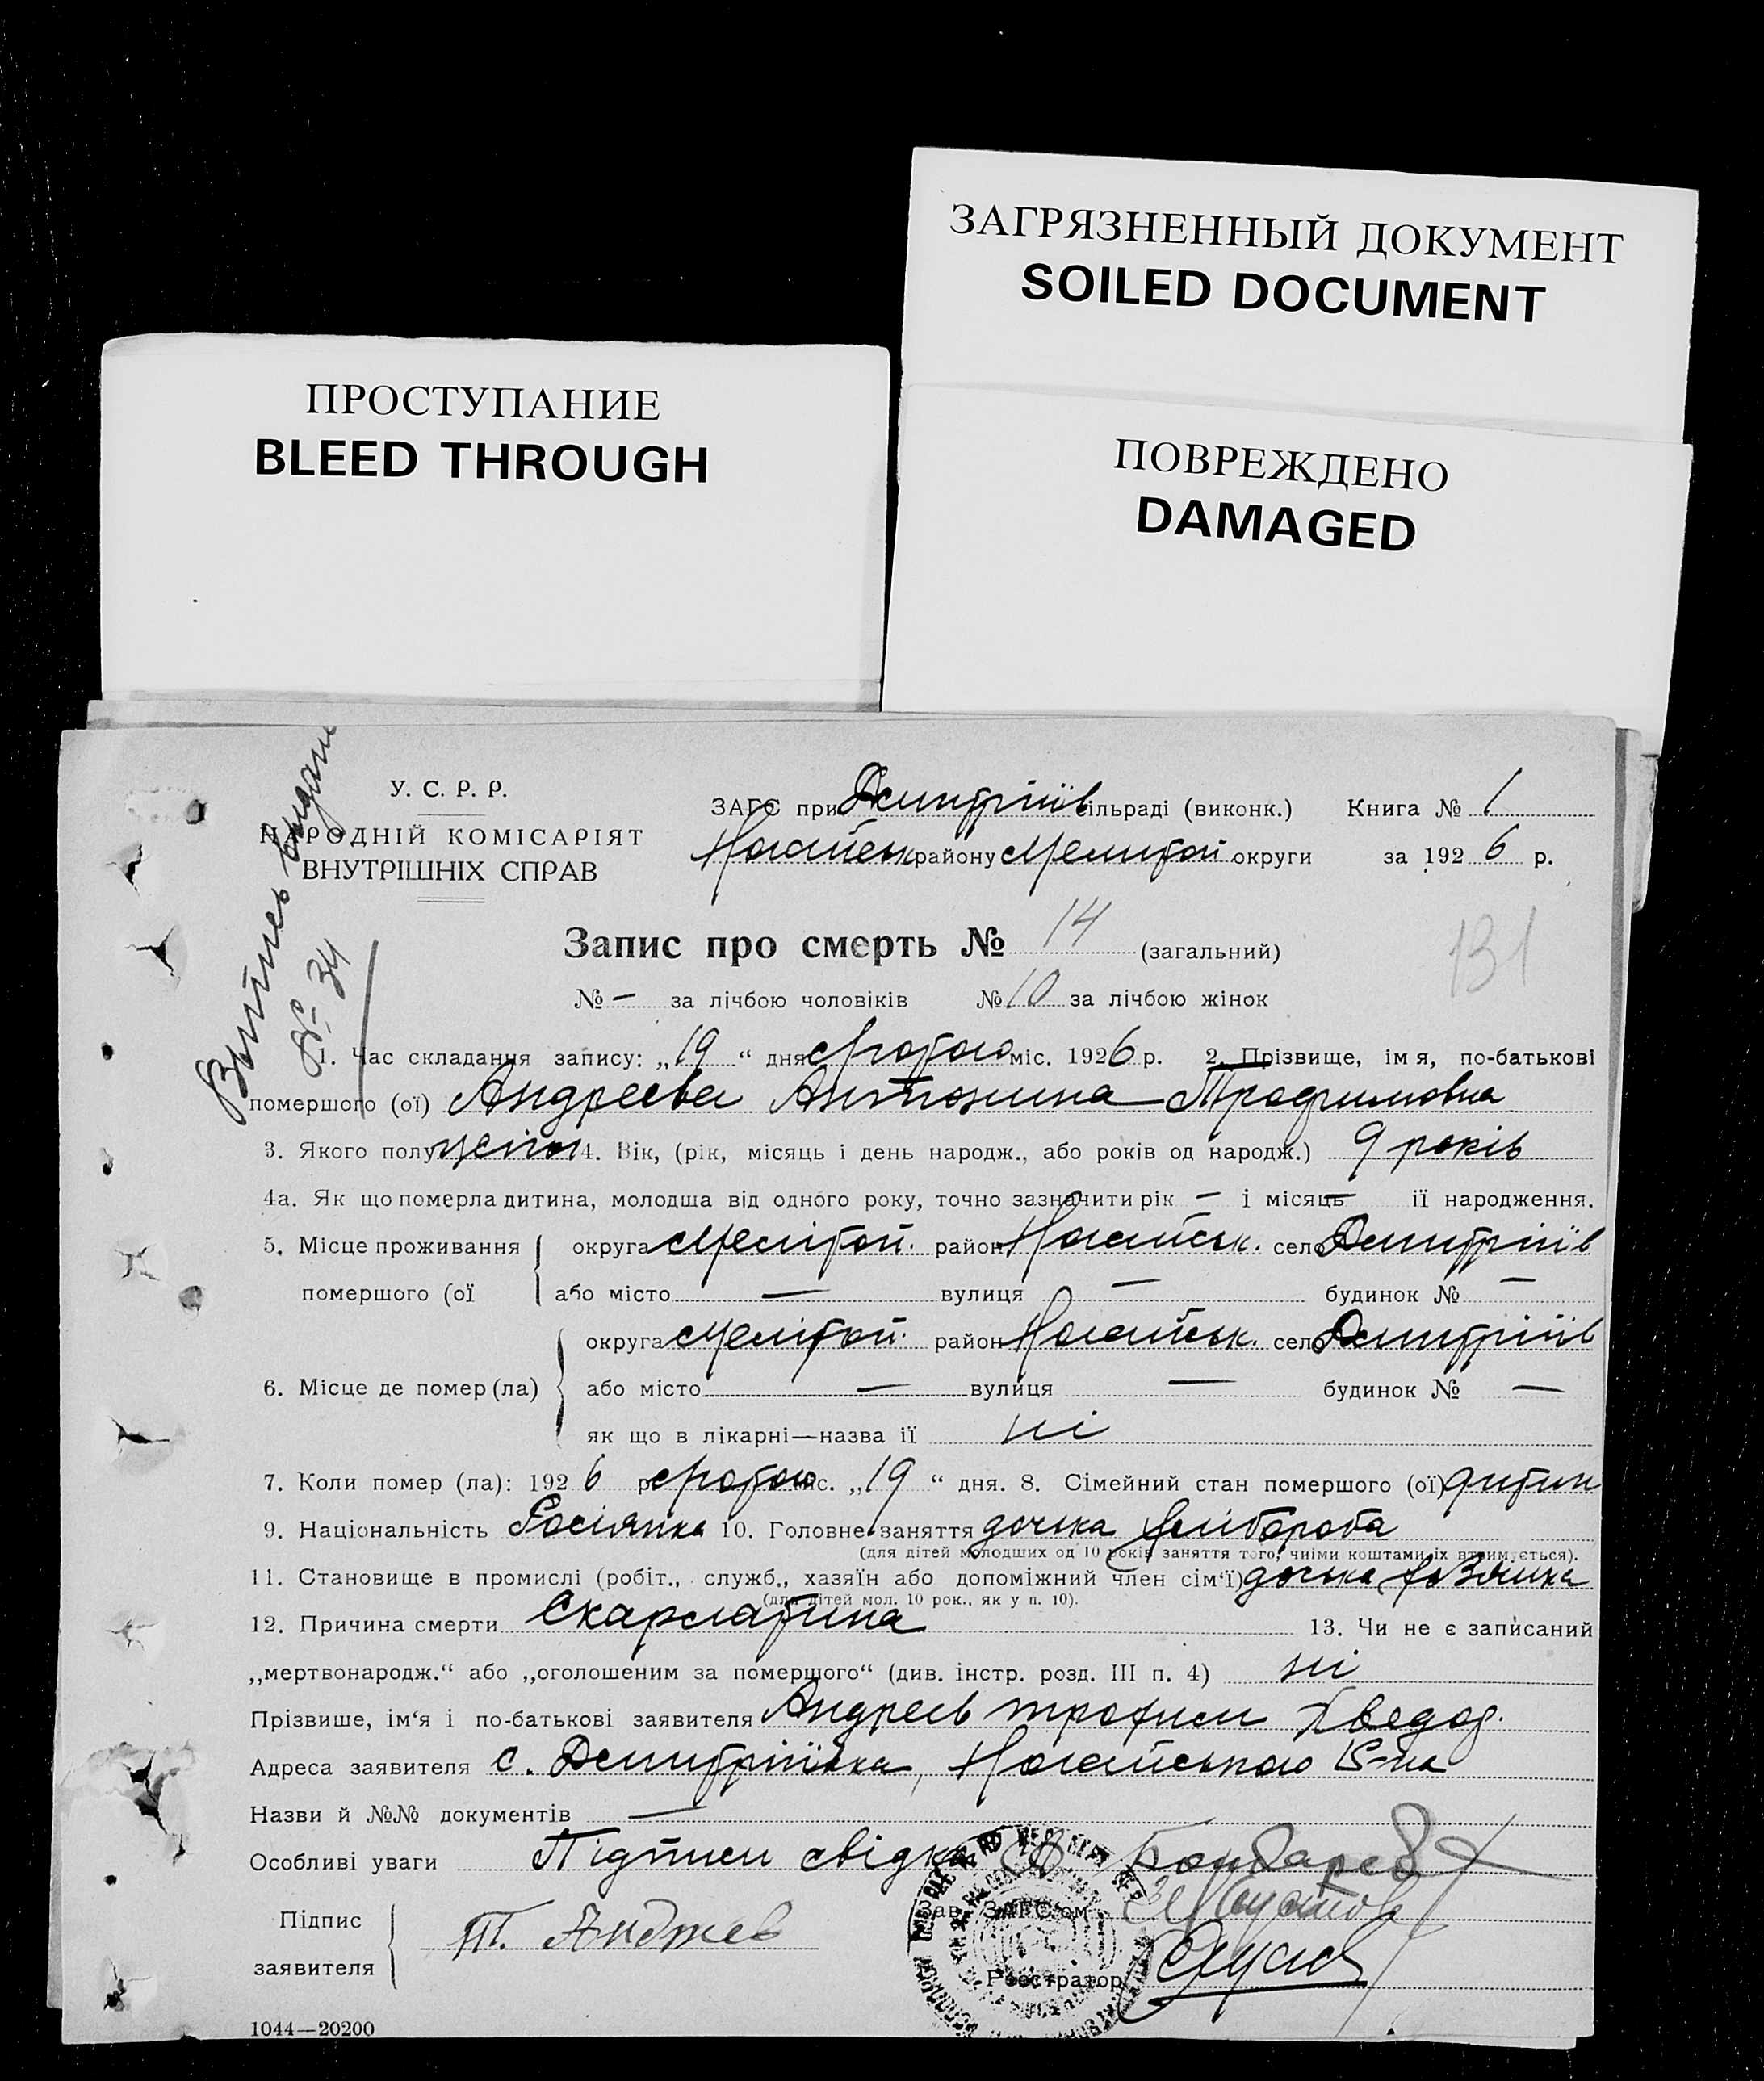 ЗАГРЯЗНЕННЫЙ ДОКУМЕНТ
SOILED DOCUMENT
ПРОСТУПАНИЕ
BLEED THROUGH
ПОВРЕЖДЕНО
DAMAGED
Витись видани
№ 34
У. С. Р. Р.
НАРОДНІЙ КОМІСАРІЯТ
ВНУТРІШНІХ СПРАВ
ЗАГС при Дмитріїв сільраді (виконк.) Книга № 1
Ногайськ району Мелитоп округи за 1926 р.
131
Запис про смерть № 14 (загальний)
№ — за лічбою чоловіків № 10 за лічбою жінок
1. Час складання запису: „19“ дня Лютого міс. 1926 р. 2. Прізвище, імя, по-батькові
помершого (ої) Андреева Антонина Трофимовна
3. Якого полу жіноч 4. Вік, (рік, місяць і день народж., або років од народж.) 9 років
4а. Як що померла дитина, молодша від одного року, точно зазначити рік — і місяць — її народження.
5. Місце проживання округа Мелітоп. район Ногайськ. село Дмитріїв
помершого (ої або місто — вулиця — будинок № —
округа Мелітоп. район Ногайськ. село Дмитріїв
6. Місце де помер (ла) або місто — вулиця — будинок № —
як що в лікарні—назва її ні
7. Коли помер (ла): 1926 р. Лютого міс. „19“ дня. 8. Сімейний стан помершого (ої) дитин
9. Національність Росіянка 10. Головне заняття дочка хлібороба
(для дітей молодших од 10 років заняття того, чиїми коштами їх втримується).
11. Становище в промислі (робіт., служб., хазяїн або допоміжний член сім'ї) дочка хозяіна
(для дітей мол. 10 рок., як у п. 10).
12. Причина смерти Скарлатина 13. Чи не є записаний
„мертвонародж.“ або „оголошеним за помершого“ (див. інстр. розд. III п. 4) ні
Прізвише, ім'я і по-батькові заявителя Андреев трофим Хведор.
Адреса заявителя с. Дмитріївка, Ногайського Р-на
Назви й №№ документів —
Особливі уваги Підписи свідків Бондарев
Підпис
заявителя
Т. Андреев
Зав. ЗАГС'ом
Реєстратор
1044—20200